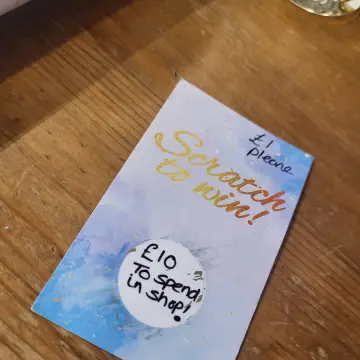 £1
please
Scratch
to win!
£10
To spend
in shop!